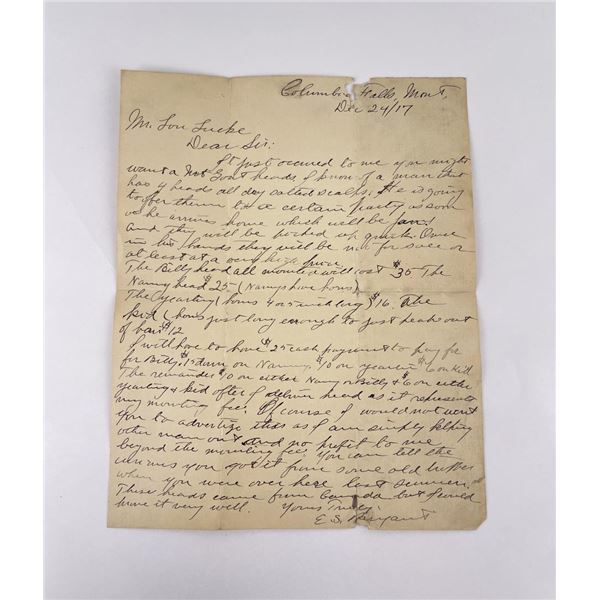 Columbia Falls, Mont,
Dec 24/17
Mr. Lou Lucke
Dear Sir:
It just occured to me you might
want a Mt Goat heads I know of a man that
has 4 head all dry salted scalps. He is going
to offer them to a certain party as soon
as he arrives home which will be Jan 1
And they will be picked up quick. Once
in his hands they will be not for sale or
at least at a very high price
The Billy head all mounted will cost $35 The
Nanny head $25 (Nannys have horns)
The yearling (horns 4 or 5 inch long $16 The
kid (horns just long enough to just peake out
of hair $12
I will have to have $25 cash payment to pay for
for Billy. $15 down on Nanny, $10 on yearlin $6 on Kid.
The remainder $10 on either Nanny or Billy & $6 on either
yearling & kid after I deliver head as it represents
my mounting fee. Of course I would not want
you to advertize this as I am simply helping
other man out and no profit to me
beyond the mounting fee. You can tell the
you got it from some old
when you were over here last summer.
These heads came from Canada but I could
have it very well. Yours Truly
E. S. Bryant